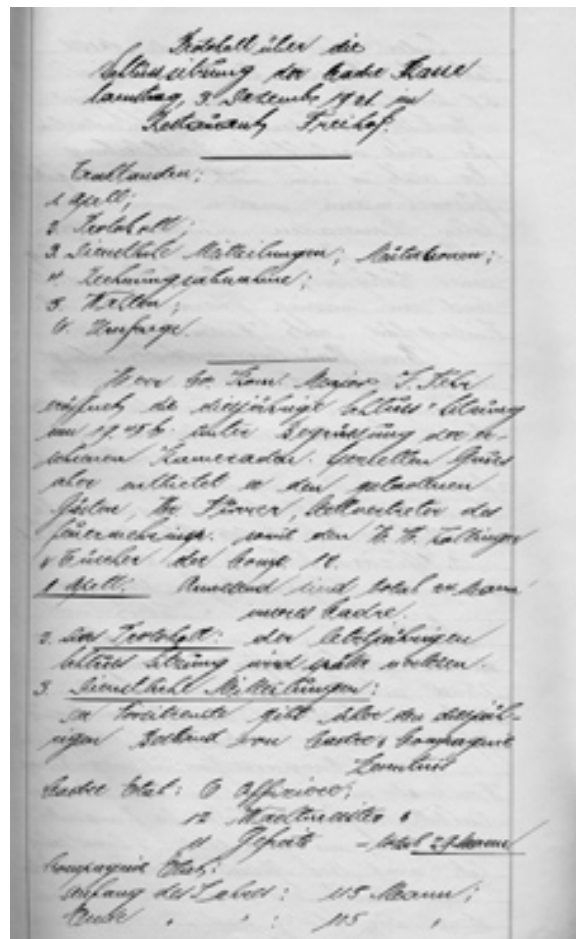 Protokoll über die
Schlusssitzung der Kadre Klasse
Samstag, 3. Dezember 1921 im
Restaurant Freihof.
Traktanden:
1. Apell;
2. Protokoll;
3. Dienstliche Mitteilungen; Mutationen;
4. Rechnungsabnahme;
5. Wahlen;
6. Umfrage.
Herr Major J.
eröffnet die diesjährige Schluss-Sitzung
um 19.45 h. unter Begrüssung der er-
schienenen Kameraden. Speziellen Gruss
aber entbietet er den geladenen
Gästen, Hr. Furrer, Stellvertreter des
somit den H. H. Zollinger
& der Komp. 10.
1. Apell. Anwesend sind total Mann
unseres Kadre
2. Das Protokoll: der letztjährigen
Schluss Sitzung wird später verlesen.
3. Dienstliche Mitteilungen:
Der Vorsitzende gibt über den diesjäh-
rigen Bestand von Kadre & Kompagnie
Kenntnis
Kadre Etat: 6 Offiziere;
12 Wachtmeister &
11 Gefreite = total 29 Mann
Kompagnie Etat:
Anfang des Jahres: 115 Mann;
Ende " " : 115 "